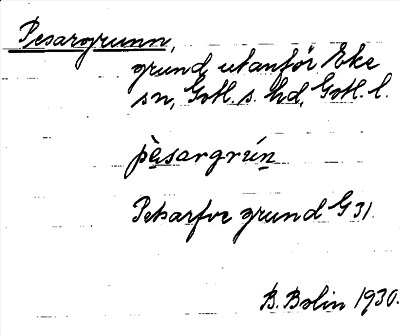 Pesargrunn,
grund utanför Eke
sn, Gotl. s. hd, Gotl. l.
pèsargrún
Petsarfve grund G 31.
B. Bolin 1930.